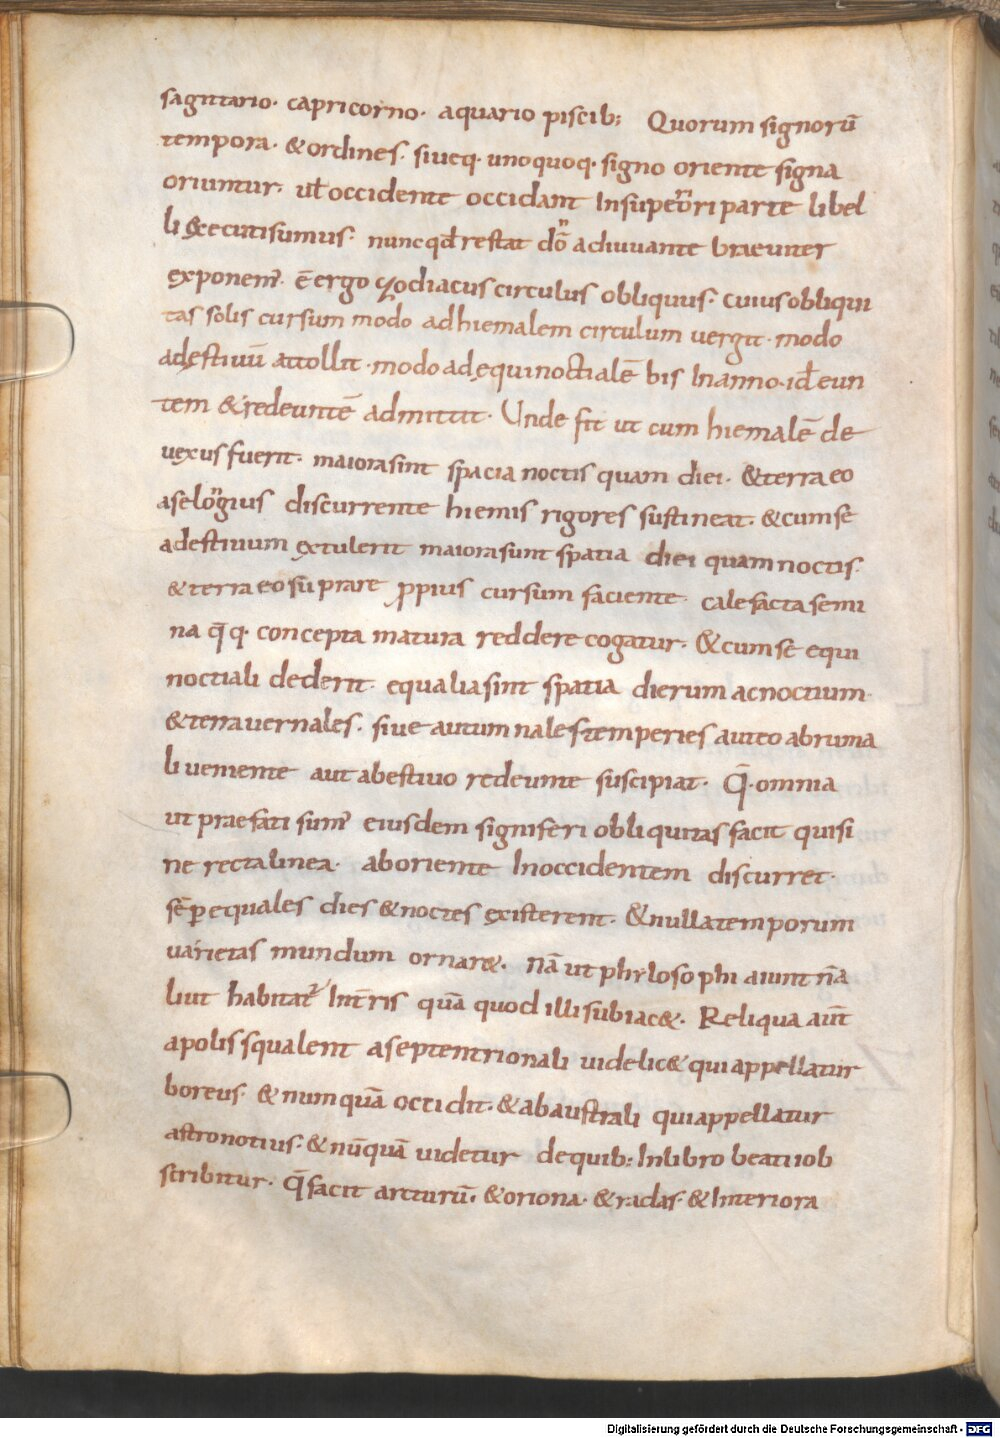 sagittario· capricorno· aquario piscib; Quorum signorū
tempora· &ordines· siueq· unoquoq· signo oriente signa
oriuntur· ut occidente occidant Insuperiori parte libel
li executisumus· nunc qd restat dno adiuuante braeuiter
exponem· ē ergo zodiacus circulus obliquus· cuius obliqui
tas solis cursum modo adhiemalem circulum uergit· modo
adęstiuū attollit· modo adęquinoctialē bis Inanno· id eun
tem &redeuntē admittit· Unde fit ut cum hiemalē de
uexus fuerit· maiorasint spacia noctis quam diei· &terra eo
ase longius discurrente hiemis rigores sustineat· &cumse
adestiuum extulerit maiorasunt spatia diei quamnoctis·
&terra eo suprase ppius cursum faciente· calefacta semi
na q̄q· concepta matura reddere cogatur· &cumse equi
noctiali dederit· equaliasint spatia dierum acnoctium·
&terra uernales· siue autumnales temperies auteo abruma
li ueniente aut abestiuo redeunte suscipiat· Q̄· omnia
ut praefati sum eiusdem signiferi obliquitas facit quisi
ne recta linea· aboriente Inoccidentem discurret·
sēp equales dies &noctes existerent· &nullatemporum
uarietas mundum ornar&· nā ut phylosophi aiunt n̄a
liut habitat Int̄ris quā quod illi subiac&· Reliqua aūt
apolis squalent aseptentrionali uidelic& qui appellatur
boreus· &numquā occidit· &abaustrali quiappellatur
astronotius· &nūquā uidetur dequib; Inlibro beati iob
scribitur· q̄ facit arcturū· &oriona· &radas· &Interiora
Digitalisierung gefördert durch die Deutsche Forschungsgemeinschaft - DFG